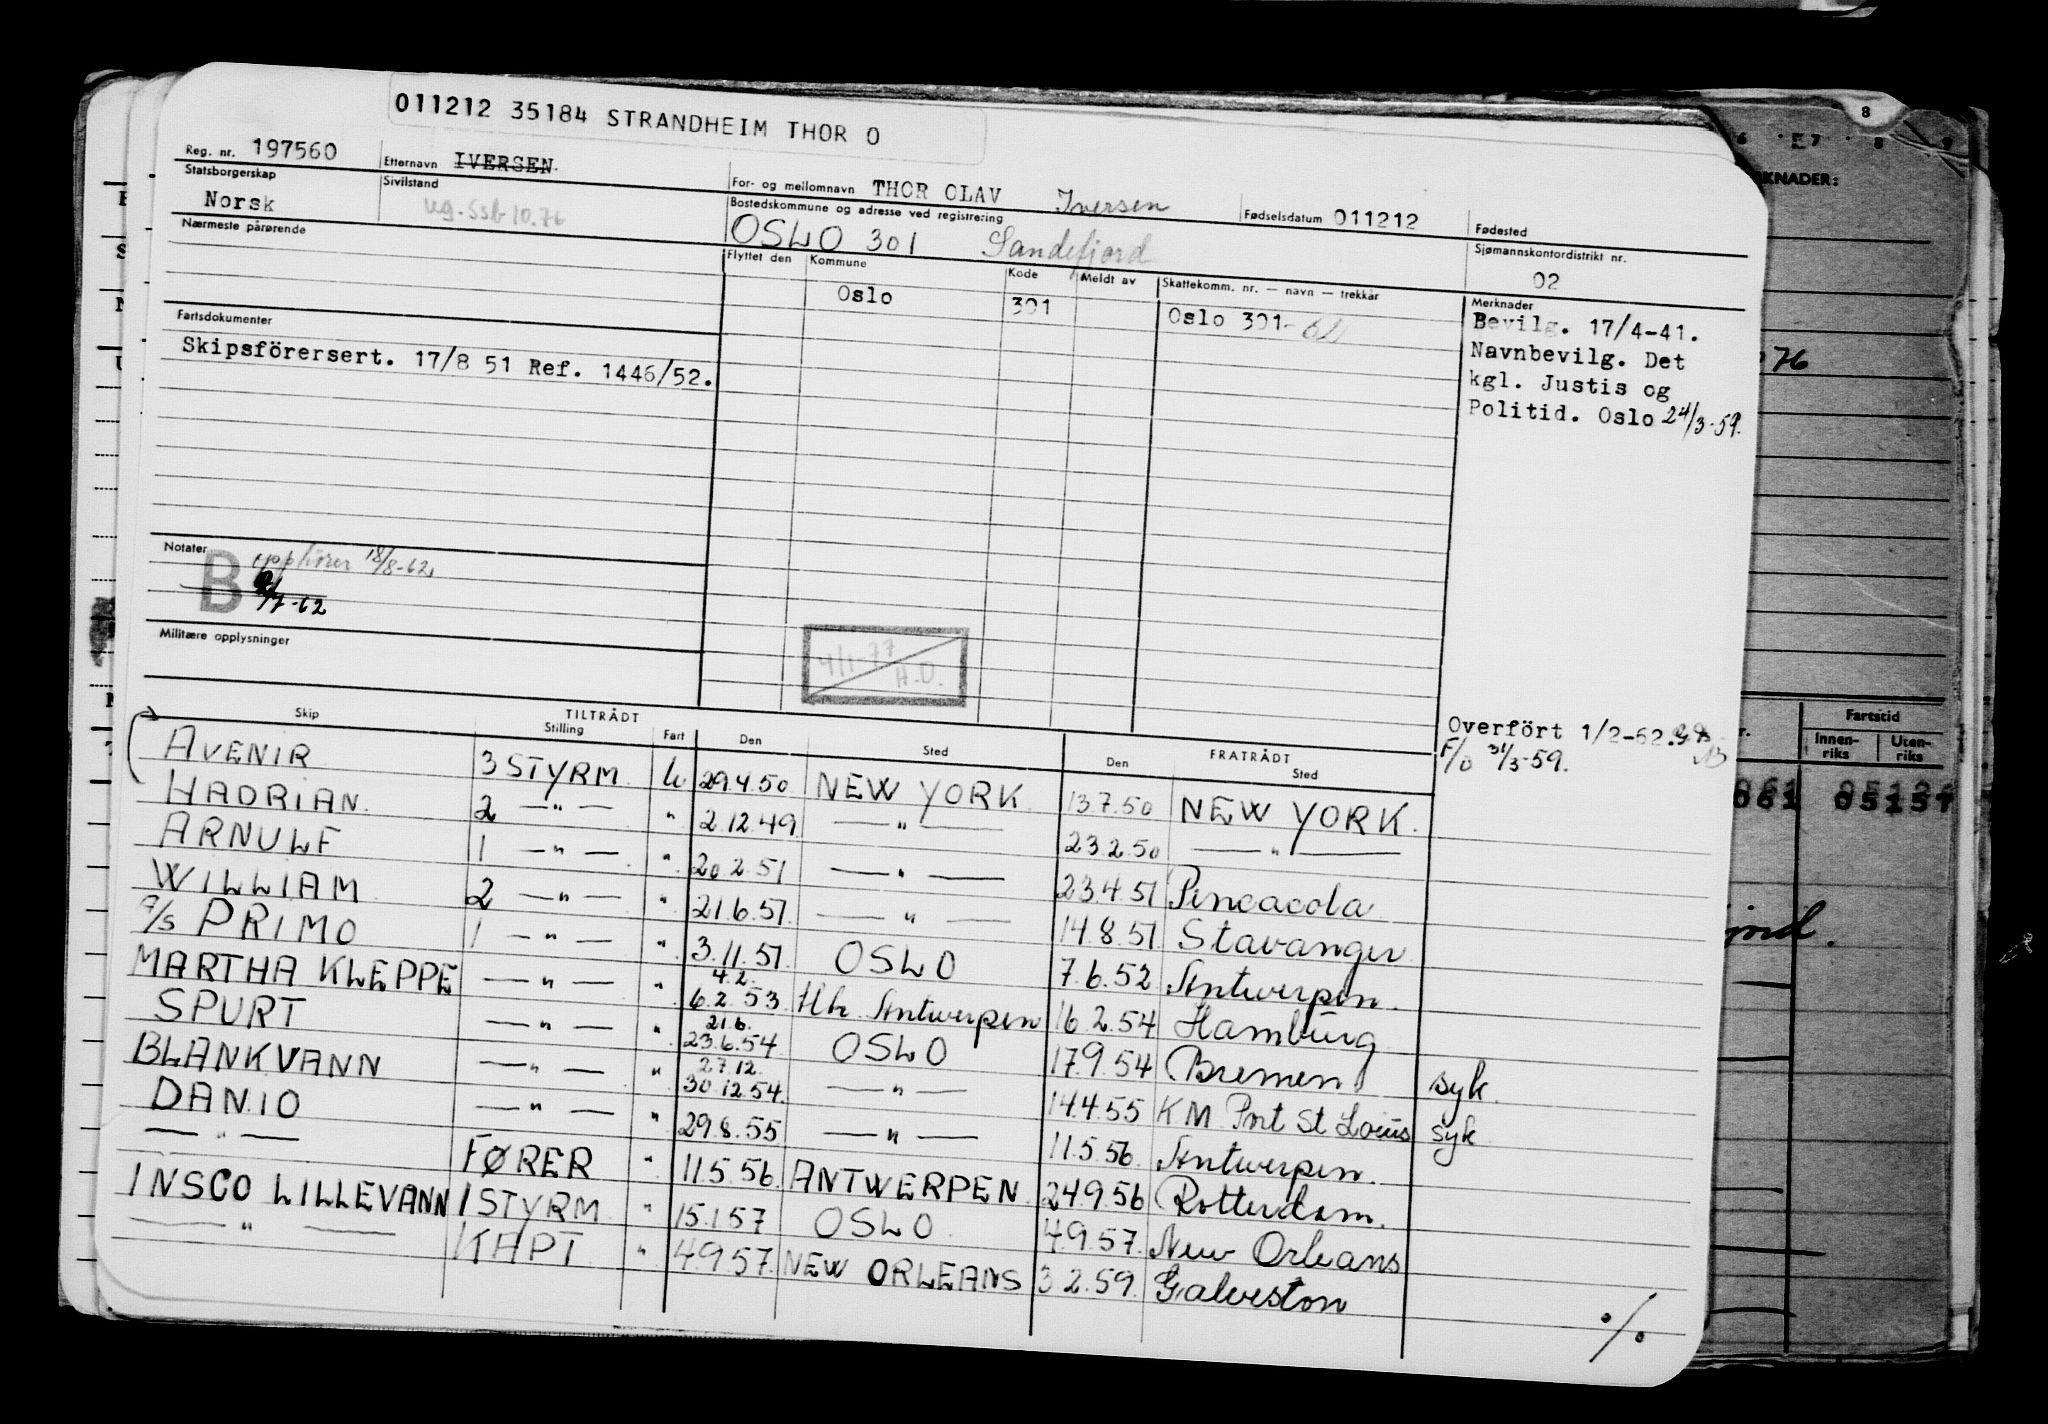 011212 35184 STRANDHEIM THOR O
Reg. nr. 197560 Etternavn IVERSEN For- og mellomnavn THOR OLAV Iversen Fødselsdatum 011212 Fødested
Statsborgerskap Norsk Sivilstand ug. Ssb 10.76 Bostedskommune og adresse ved registrering OSLO 301 Sandefjord Sjømannskontordistrikt nr. 02
Nærmeste pårørende Flyttet den Kommune Kode Meldt av Skattekomm. nr. — navn — trekkår Merknader
Oslo 301 Oslo 301-
Bevilg. 17/4-41.
Navnbevilg. Det
kgl. Justis og
Politid. Oslo 24/3-59.
Fartsdokumenter
Skipsförersert. 17/8 51 Ref. 1446/52.
Notater
B opphører 18/8-62
/7-62
Militære opplysninger
4/1-77
H.O.
Overfört 1/2-62.
F/o 31/3-59.
Skip TILTRÅDT FRATRÅDT
Stilling Fart Den Sted Den Sted
AVENIR 3 STYRM. U 29.4.50 NEW YORK 13.7.50 NEW YORK.
HADRIAN. 2 — " — " 2.12.49 — " — 23.2.50 — " —
ARNULF 1 — " — " 20.2.51 — " — 23.4.51 Pencacola
WILLIAM 2 — " — " 21.6.51. — " — 14.8.51 Stavanger
a/s PRIMO 1 — " — " 3.11.51. OSLO 7.6.52 Antwerpen.
MARTHA KLEPPE — " — " 4.2. 6.2.53 Hk Antwerpen 16.2.54 Hamburg
SPURT — " — " 21.6. 23.6.54 OSLO 17.9.54 Bremen syk.
BLANKVANN — " — " 27.12. 30.12.54. — " — 14.4.55 KM Port St Louis syk
DANIO — " — " 29.8.55 — " — 11.5.56. Antwerpen.
— " — FØRER " 11.5.56. ANTWERPEN. 24.9.56 Rotterdam.
INSCO LILLEVANN 1 STYRM. " 15.1.57 OSLO. 4.9.57. New Orleans
— " — KAPT. " 4.9.57. NEW ORLEANS 3.2.59. Galveston
./.
8
6 7 8 9
KNADER:
76
Fartstid
r. Innen-riks Uten-riks
061 05151
jord.